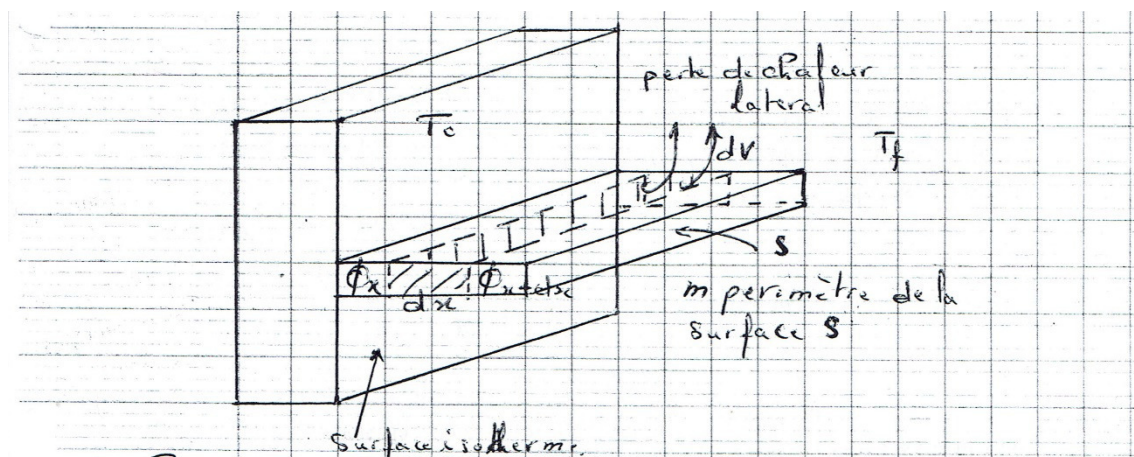 perte de chaleur
lateral
Tc
dV
Tf
S
ϕx
ϕx+dx
dx
m perimètre de la
surface S
Surface isotherme.